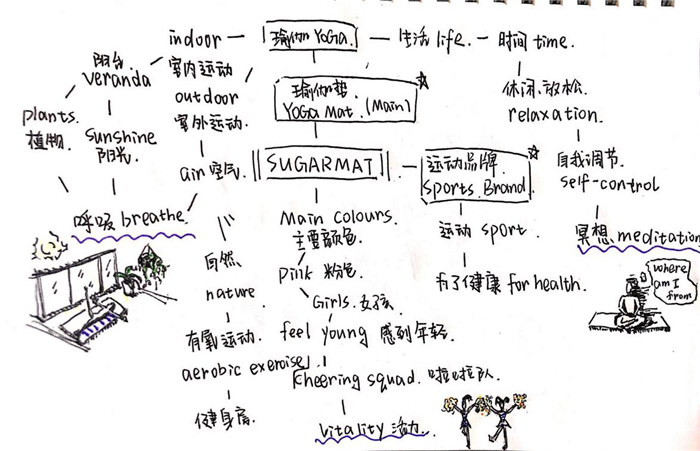 indoor
瑜伽 YOGA.
生活 life.
时间 time.
阳台.
veranda
室内运动
outdoor
室外运动.
瑜伽垫.
YOGA Mat. (Main)
休闲.放松.
relaxation.
plants.
植物.
Sunshine
阳光.
air 空气
SUGARMAT
运动品牌.
Sports. Brand.
自我调节.
self-control
呼吸 breathe.
Main colours.
主要颜色.
运动 sport.
冥想 meditation
自然.
nature.
pink 粉色
为了健康 for health.
where
am I
from
Girls.女孩.
有氧运动.
aerobic exercise
feel young 感到年轻.
cheering squad. 啦啦队.
健身房.
vitality 活力.